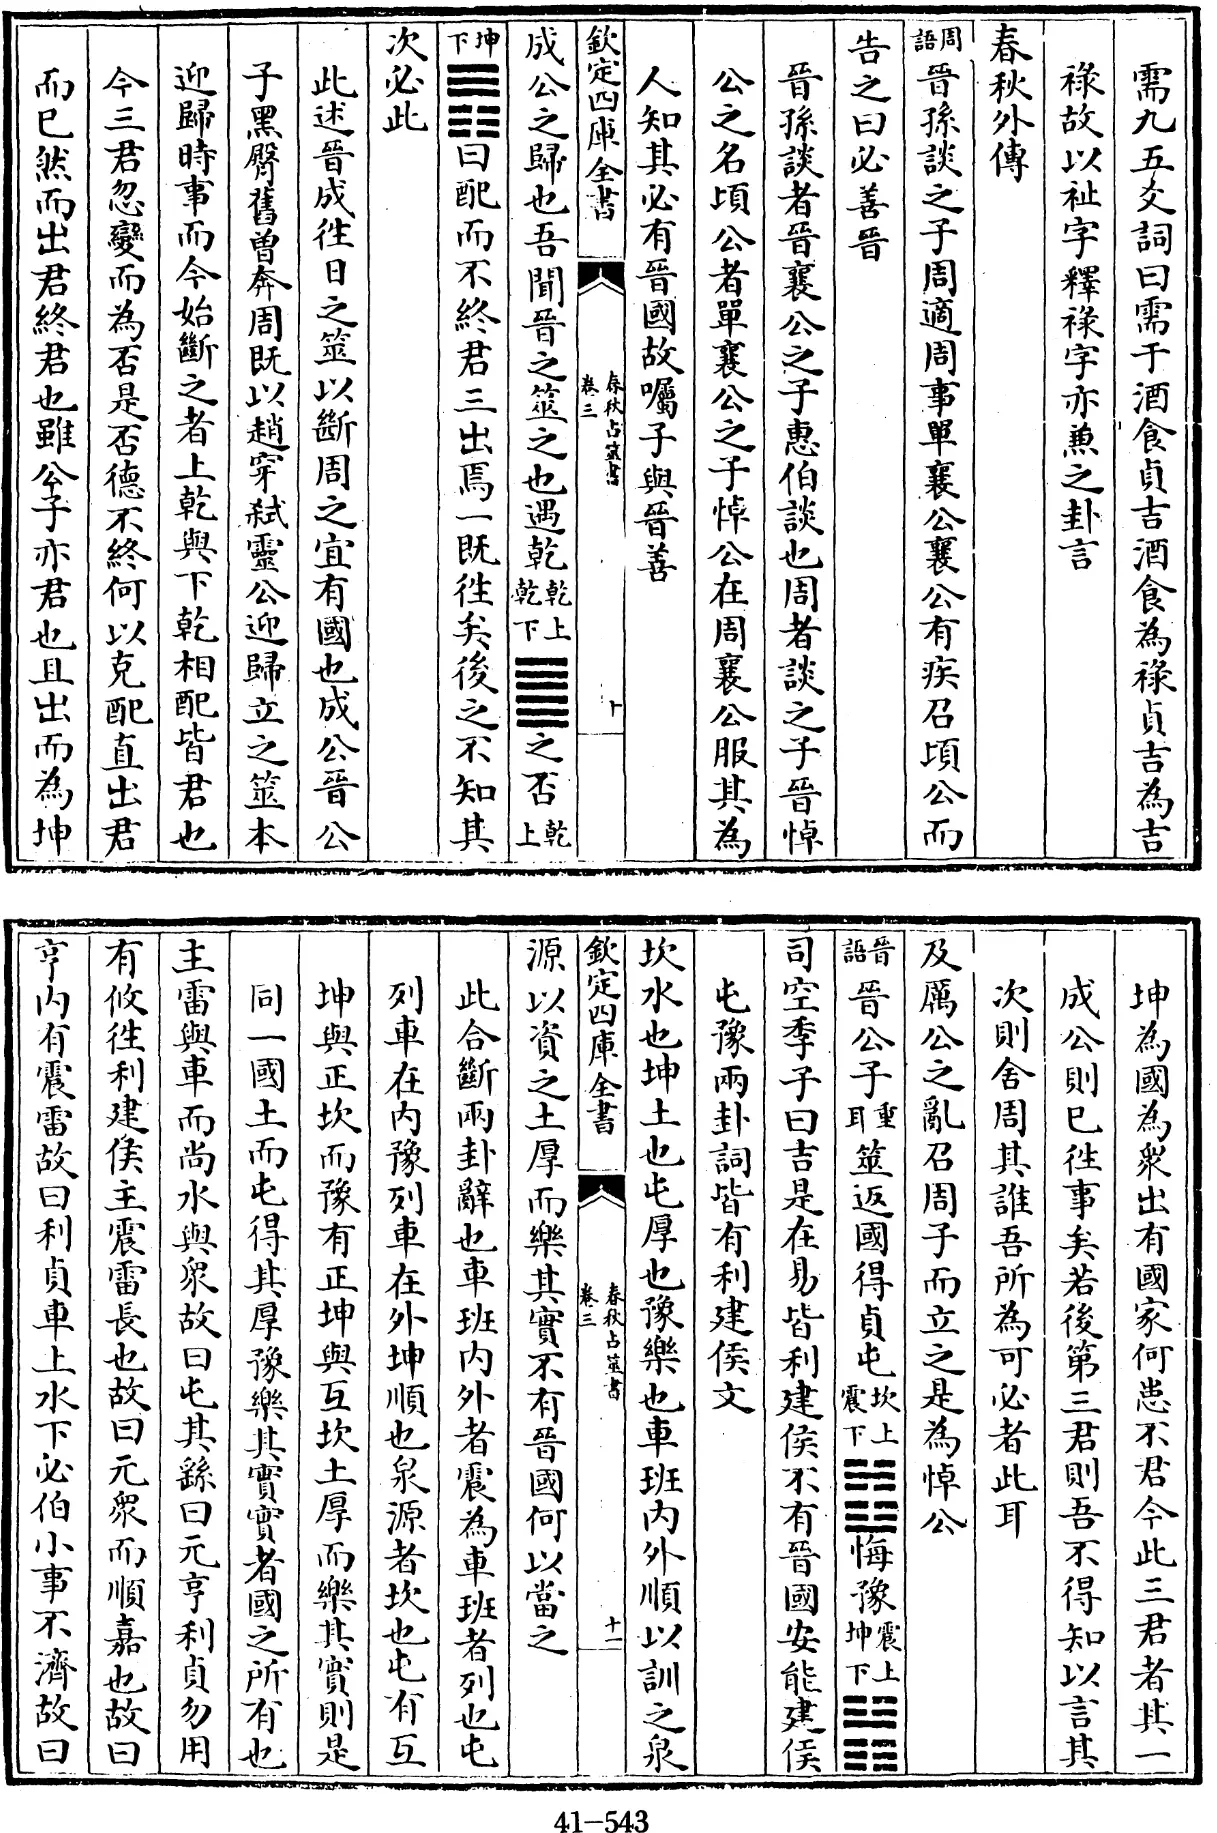 需九五爻詞曰需于酒食貞吉酒食為祿貞吉為吉
祿故以祉字釋祿字亦兼之卦言
春秋外傳
周語晉孫談之子周適周事單襄公襄公有疾召頃公而
告之曰必善晉
晉孫談者晉襄公之子惠伯談也周者談之子晉悼
公之名頃公者單襄公之子悼公在周襄公服其為
人知其必有晉國故囑子與晉善
欽定四庫全書
春秋占筮書
卷三
十
成公之歸也吾聞晉之筮之也遇乾乾上乾下䷀之否乾上
坤下䷋曰配而不終君三出焉一既往矣後之不知其
次必此
此述晉成往日之筮以斷周之宜有國也成公晉公
子黑臀舊曾奔周既以趙穿弑靈公迎歸立之筮本
迎歸時事而今始斷之者上乾與下乾相配皆君也
今三君忽變而為否是否德不終何以克配直出君
而已然而出君終君也雖公子亦君也且出而為坤
坤為國為衆出有國家何患不君今此三君者其一
成公則已往事矣若後第三君則吾不得知以言其
次則舍周其誰吾所為可必者此耳
及厲公之亂召周子而立之是為悼公
晉語晉公子重耳筮返國得貞屯坎上震下䷂悔豫震上坤下䷏
司空季子曰吉是在易皆利建侯不有晉國安能建侯
屯豫兩卦詞皆有利建侯文
坎水也坤土也屯厚也豫樂也車班內外順以訓之泉
欽定四庫全書
春秋占筮書
卷三
十一
源以資之土厚而樂其實不有晉國何以當之
此合斷兩卦辭也車班內外者震為車班者列也屯
列車在內豫列車在外坤順也泉源者坎也屯有互
坤與正坎而豫有正坤與互坎土厚而樂其實則是
同一國土而屯得其厚豫樂其實實者國之所有也
主雷與車而尚水與衆故曰屯其繇曰元亨利貞勿用
有攸往利建侯主震雷長也故曰元衆而順嘉也故曰
亨內有震雷故曰利貞車上水下必伯小事不濟故曰
41-543